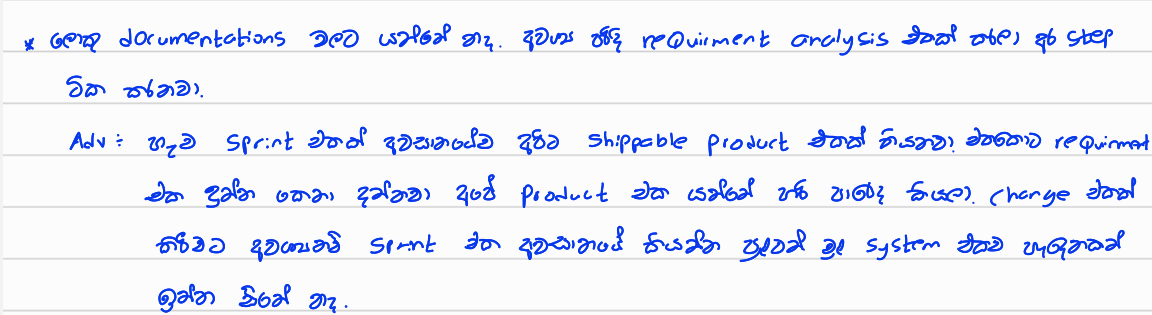 * ලොකු documentations වලට යන්නේ නෑ. අවශ්‍ය පරිදි requirment analysis එකක් කරලා අර step
ටික කරනවා.
Adv : හැම sprint එකක් අවසානයේම අපිට shippable product එකක් තියනවා. එතකොට requirment
එක දුන්න කෙනා දන්නවා අපේ product එක යන්නේ හරි පාරේද කියලා. change එකක්
කිරීමට අවශ්‍යනම් sprint එක අවසානයේ කියන්න පුළුවන් මුළු system එකම හැදෙනකන්
ඉන්න ඕනේ නෑ.